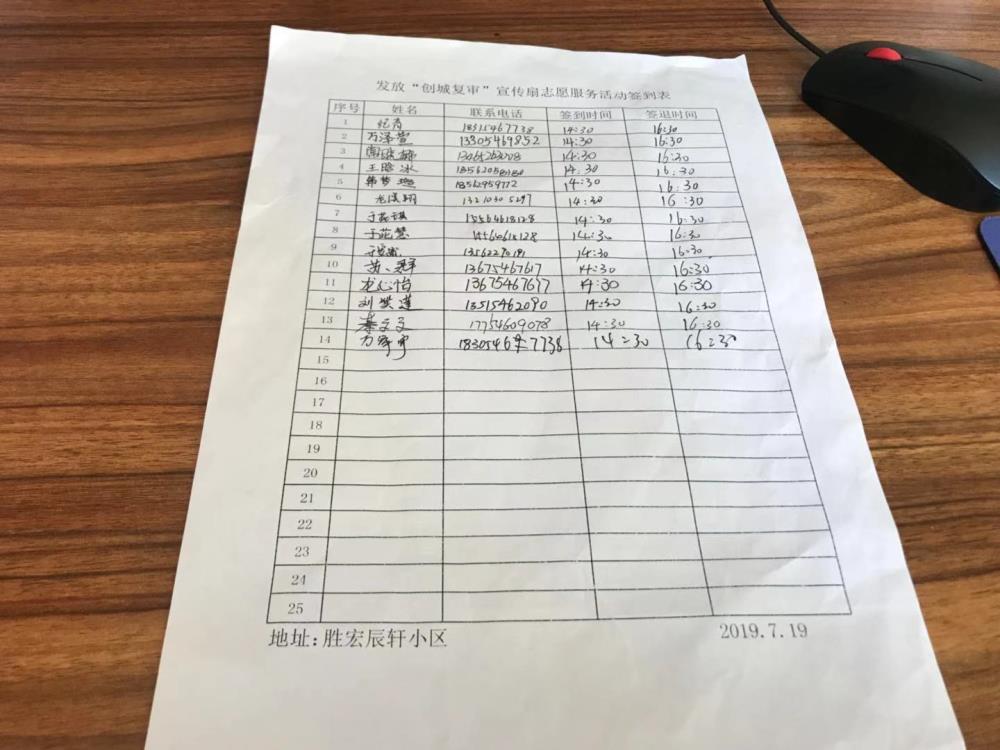 发放“创城复审”宣传扇志愿服务活动签到表
序号 姓名 联系电话 签到时间 签退时间
1 纪青 18315467738 14:30 16:30
2 万泽萱 13305469852 14:30 16:30
3 14:30 16:30
4 王晗冰 14:30 16:30
5 18562959772 14:30 16:30
6 龙淏翔 14:30 16:30
7 15564618128 14:30 16:30
8 于花慧 14:30 16:30
9 14:30 16:30
10 13675467617 14:30 16:30
11 龙心怡 13675467617 14:30 16:30
12 刘 莲 13515462090 14:30 16:30
13 秦文文 17754609078 14:30 16:30
14 14:30 16:30
15
16
17
18
19
20
21
22
23
24
25
地址:胜宏辰轩小区 2019.7.19